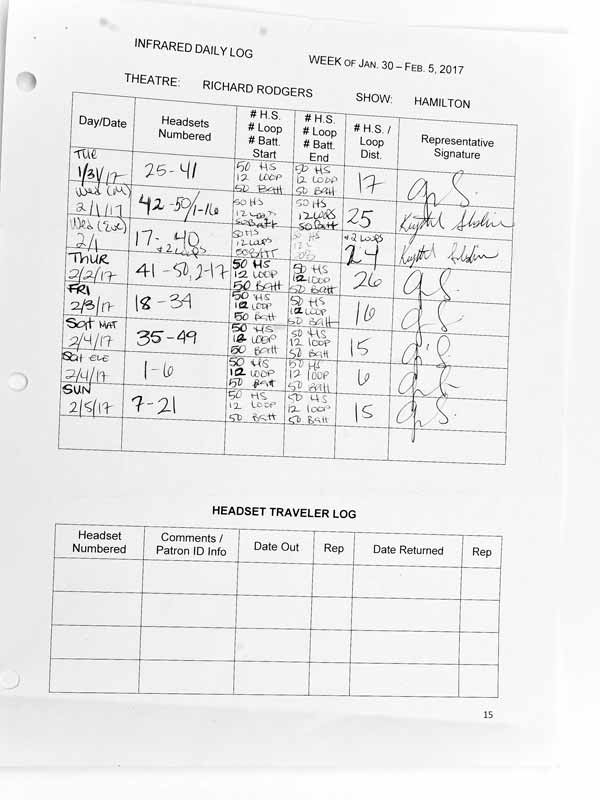 INFRARED DAILY LOG
WEEK OF JAN. 30 – FEB. 5, 2017
THEATRE: RICHARD RODGERS
SHOW: HAMILTON
Day/Date
Headsets Numbered
# H.S. # Loop # Batt. Start
# H.S. # Loop # Batt. End
# H.S. / Loop Dist.
Representative Signature
TUE 1/31/17
25-41
50 HS 12 LOOP 50 BATT
50 HS 12 LOOP 50 BATT
17
Wed (M) 2/1/17
42-50/1-16
50 HS 12 Loops 50 Batt
50 HS 12 Loops 50 Batt
25
Wed (Eve) 2/1
17-40 +2 Loops
50 HS 12 Loops 50 BATT
50 HS
24 +2 Loops
THUR 2/2/17
41-50, 2-17
50 HS 12 LOOP 50 BATT
50 HS 12 LOOP 50 BATT
26
FRI 2/3/17
18-34
50 HS 12 LOOP 50 BATT
50 HS 12 LOOP 50 BATT
16
Sat MAT 2/4/17
35-49
50 HS 12 LOOP 50 BATT
50 HS 12 LOOP 50 BATT
15
Sat EVE 2/4/17
1-6
50 HS 12 LOOP 50 BATT
50 HS 12 LOOP 50 BATT
6
SUN 2/5/17
7-21
50 HS 12 LOOP 50 BATT
50 HS 12 LOOP 50 BATT
15
HEADSET TRAVELER LOG
Headset Numbered
Comments / Patron ID Info
Date Out
Rep
Date Returned
Rep
15